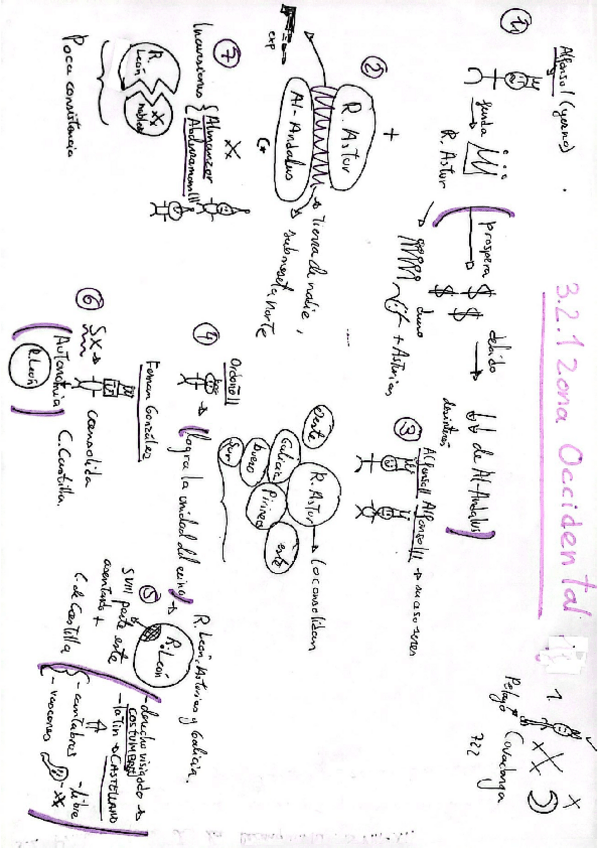 3.2.1 Zona Occidental
1.
Pelayo
Covadonga
722
1
Alfonso I (yerno)
funda
R. Astur
prospera
$ $
$ $
debido
↓↓ de Al-Andalus
desinterés
duero
+ Asturias
+
2
R. Astur
Al-Andalus
exp
→ Tierra de nadie,
submeseta norte
3
Alfonso II Alfonso III → sucesores
R. Astur → lo consolidan
oeste
Galicia
Duero
Sur
Pirineo
este
4
Ordoño II
→ Logra la unidad del reino →
R. León, Asturias y Galicia.
5
R. León
SVIII parte este
asentados +
C. de Castilla
- cántabros
- vascones
- libre
- derecho visigodo →
COSTUMBRES
- latín → CASTELLANO
6
SX →
consolida
Fernán González
Autonomía
C. Castilla.
R. León
7
Incursiones
Almanzor
Abderramán III
R. León
nobles
Poca consistencia